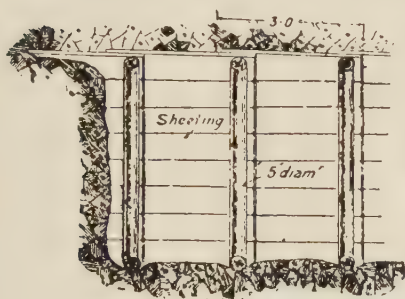 3-0
Sheeting
5"diam'